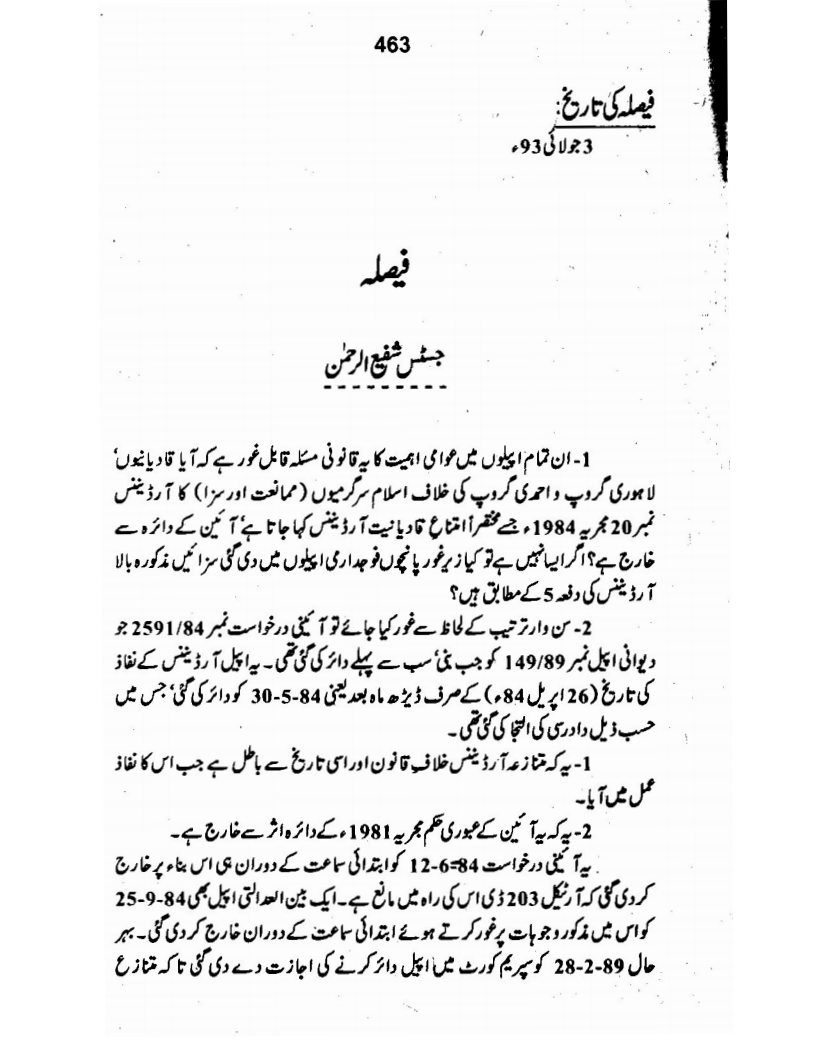 463
فیصلہ کی تاریخ:
3 جولائی 93ء
فیصلہ
جسٹس شفیع الرحمٰن
1- ان تمام اپیلوں میں عوامی اہمیت کا یہ قانونی مسئلہ قابل غور ہے کہ آیا قادیانیوں‘
لاہوری گروپ و احمدی گروپ کی خلاف اسلام سرگرمیوں (ممانعت اور سزا) کا آرڈیننس
نمبر 20 مجریہ 1984ء جسے مختصراً امتناع قادیانیت آرڈیننس کہا جاتا ہے‘ آئین کے دائرہ سے
خارج ہے؟ اگر ایسا نہیں ہے تو کیا زیر غور پانچوں فوجداری اپیلوں میں دی گئی سزائیں مذکورہ بالا
آرڈیننس کی دفعہ 5 کے مطابق ہیں؟
2- سن وار ترتیب کے لحاظ سے غور کیا جائے تو آئینی درخواست نمبر 2591/84 جو
دیوانی اپیل نمبر 149/89 کو جب بنی‘ سب سے پہلے دائر کی گئی تھی۔ یہ اپیل آرڈیننس کے نفاذ
کی تاریخ (26 اپریل 84ء) کے صرف ڈیڑھ ماہ بعد یعنی 84-5-30 کو دائر کی گئی‘ جس میں
حسب ذیل دادرسی کی التجا کی گئی تھی۔
1- یہ کہ متنازعہ آرڈیننس خلاف قانون اور اسی تاریخ سے باطل ہے جب اس کا نفاذ
عمل میں آیا۔
2- یہ کہ یہ آئین کے عبوری حکم مجریہ 1981ء کے دائرہ اثر سے خارج ہے۔
یہ آئینی درخواست 84-6-12 کو ابتدائی سماعت کے دوران ہی اس بناء پر خارج
کر دی گئی کہ آرٹیکل 203 ڈی اس کی راہ میں مانع ہے۔ ایک بین العدالتی اپیل بھی 84-9-25
کو اس میں مذکور وجوہات پر غور کرتے ہوئے ابتدائی سماعت کے دوران خارج کر دی گئی۔ بہر
حال 89-2-28 کو سپریم کورٹ میں اپیل دائر کرنے کی اجازت دے دی گئی تاکہ متنازع